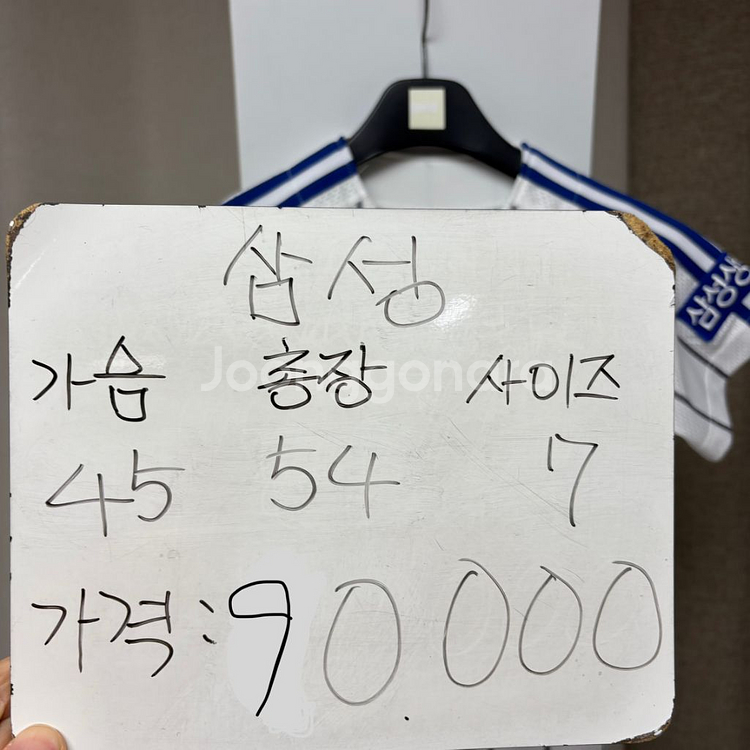 삼성
가슴 총장 사이즈
45 54 7
가격: 90.000
삼성
Joonggonara